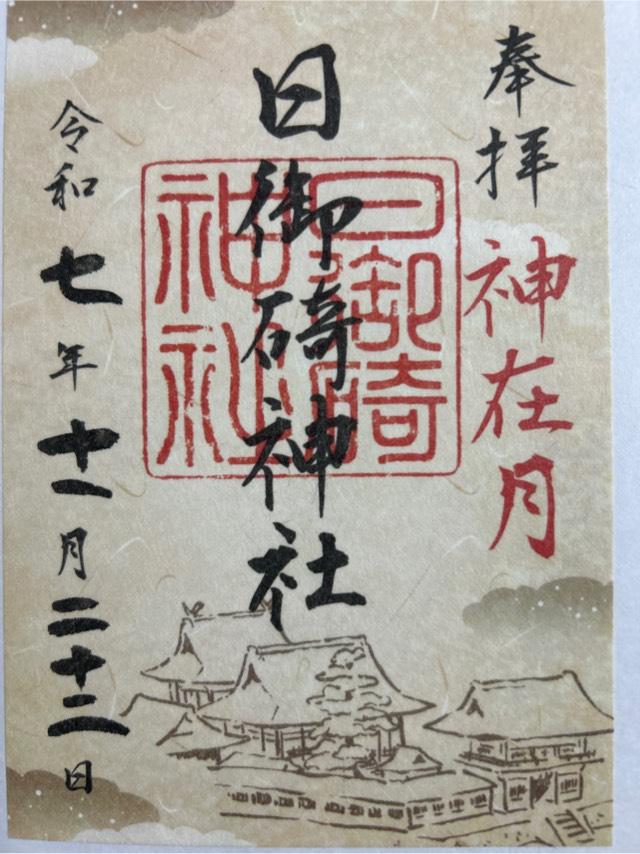 奉拝
神在月
日御碕神社
日御碕
神社
令和七年十一月二十三日